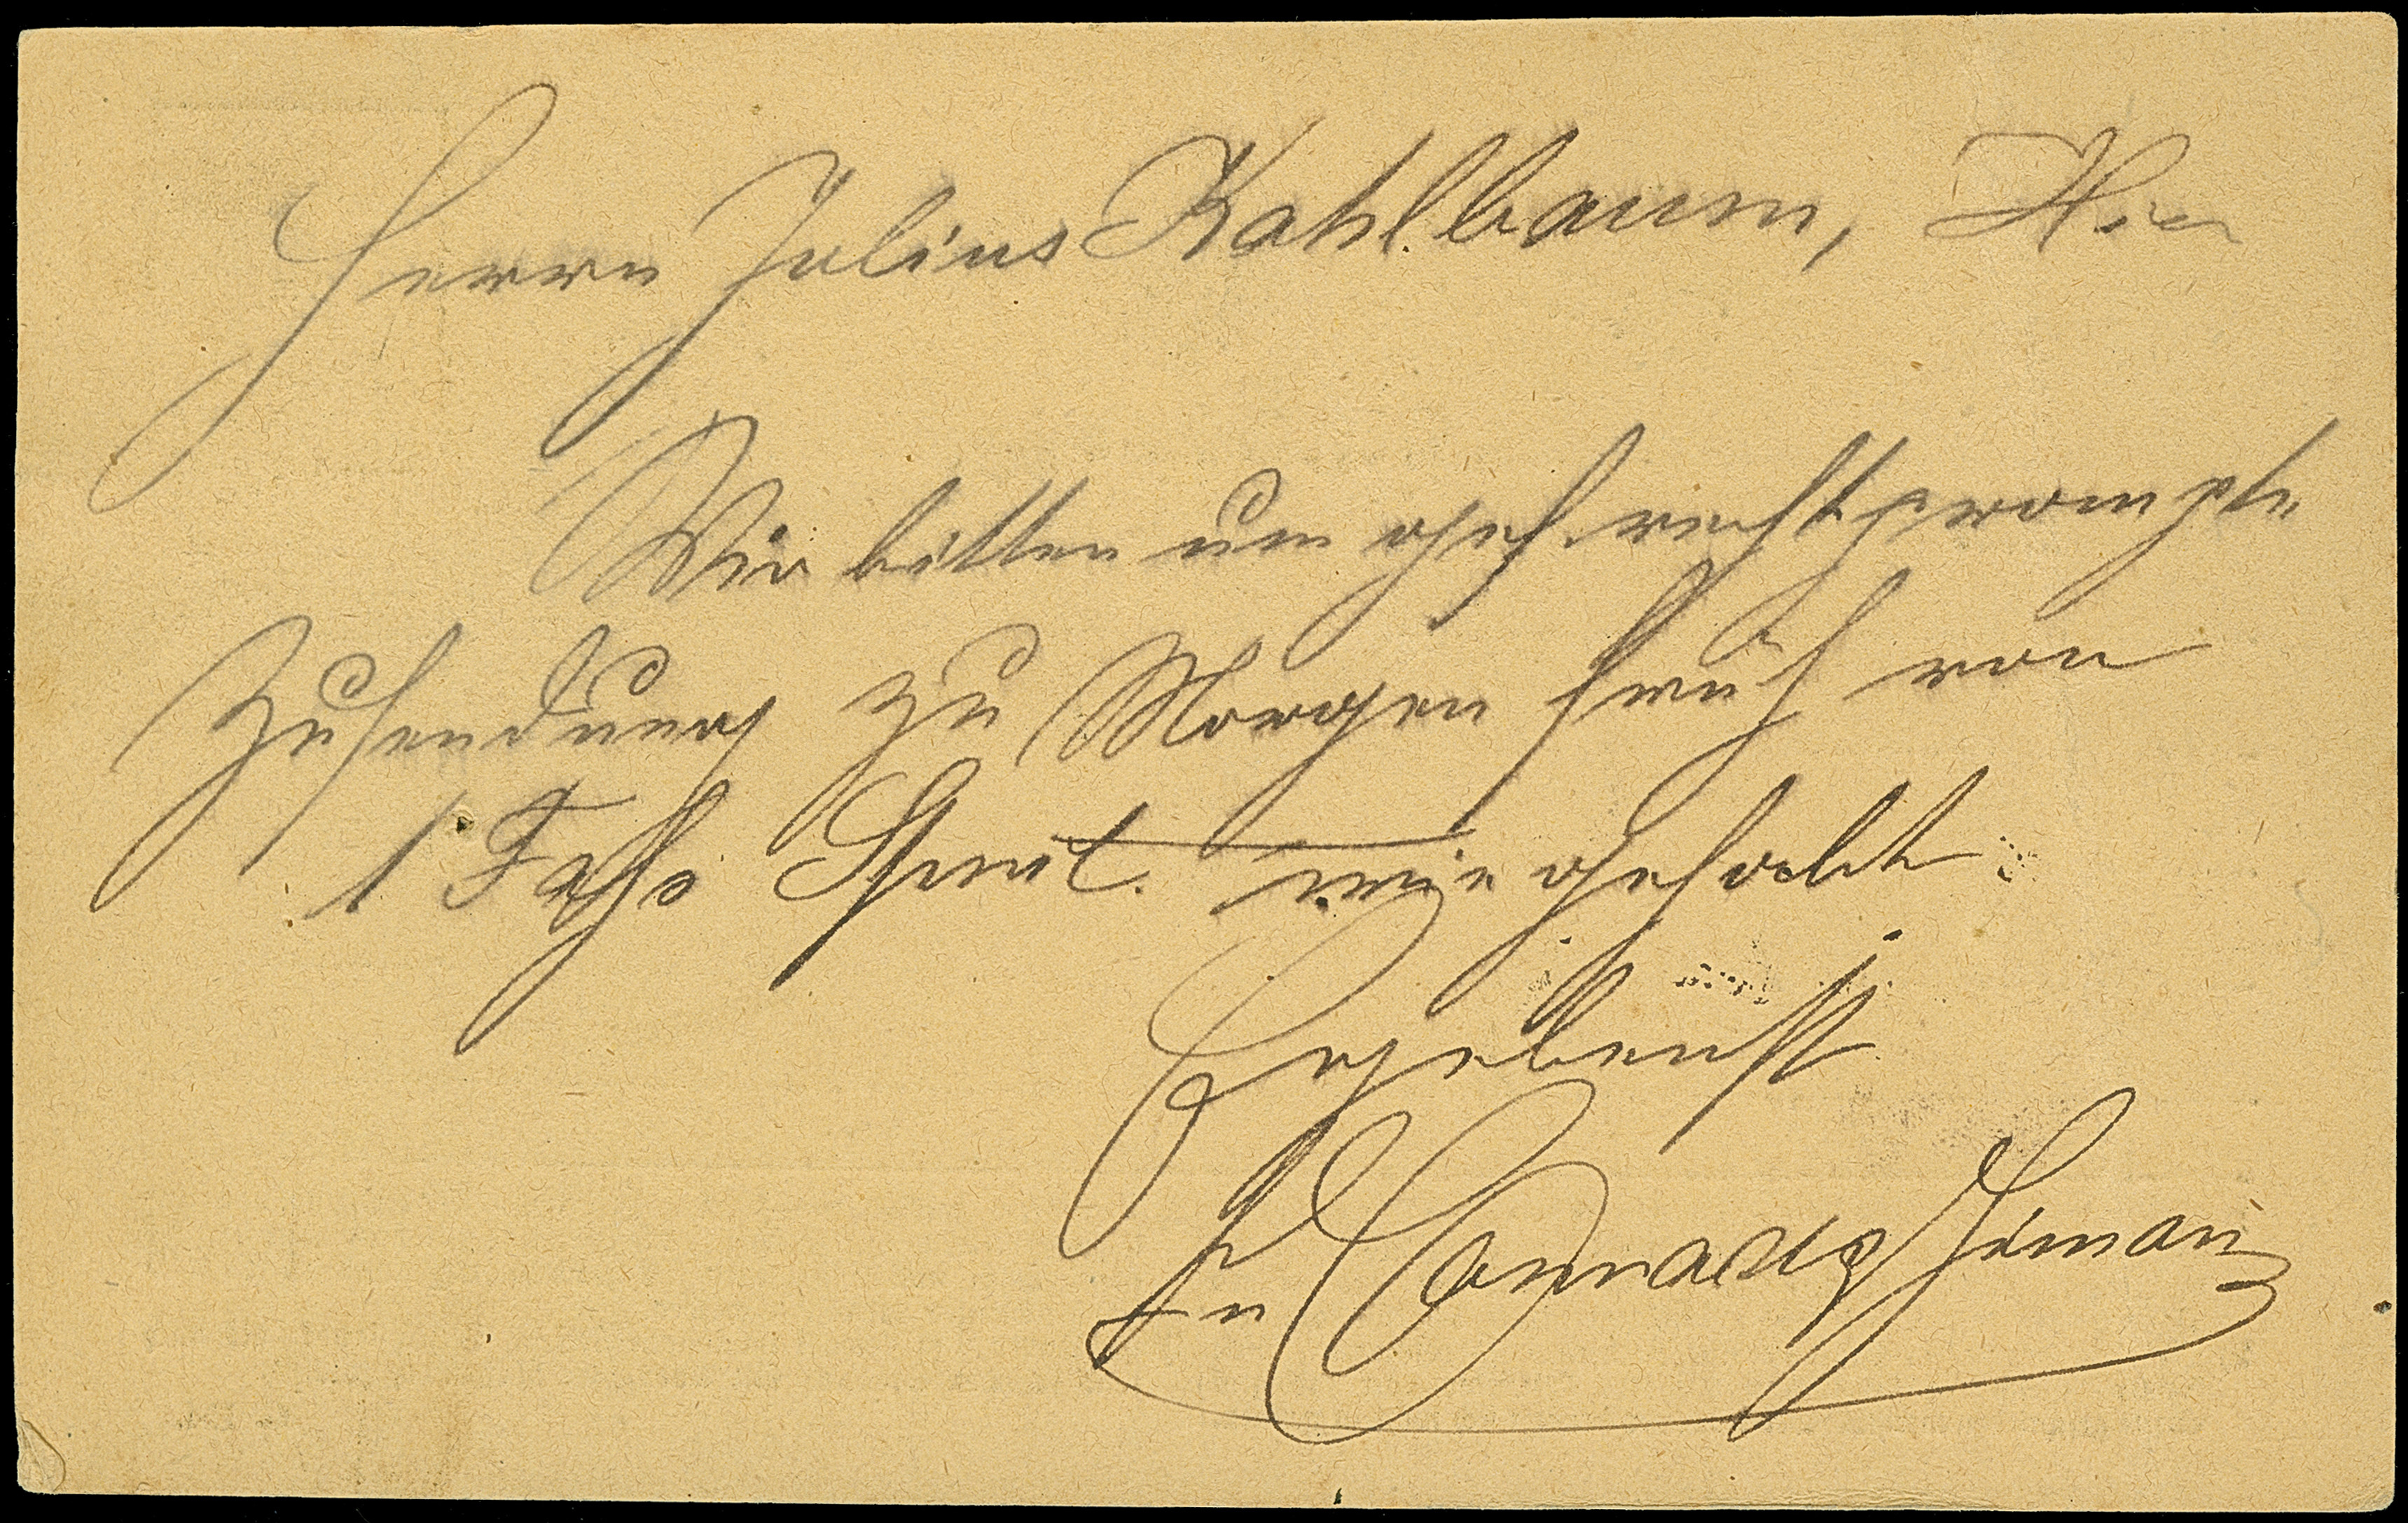 Herrn Julius Kahlbaum, Hier
Wir bitten um gef. recht prompte
Zusendung zu Morgen früh von
1 Fass Sprit wie gehabt
Ergebenst
Conrad &